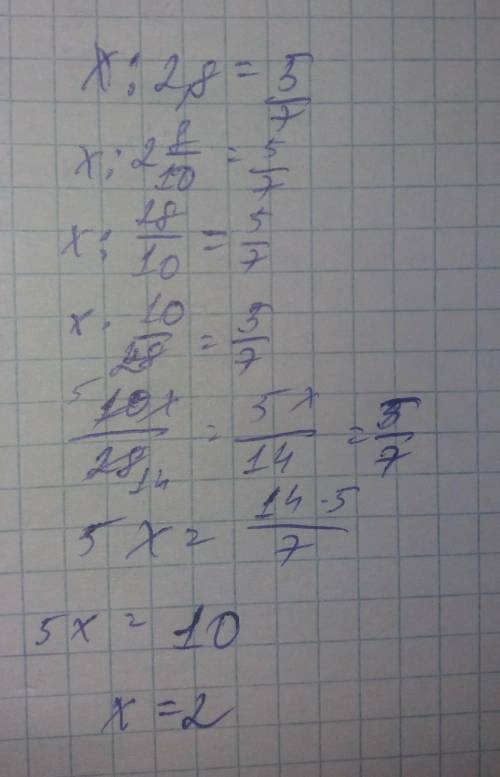 x : 2,8 = 5/7
x : 2 8/10 = 5/7
x : 28/10 = 5/7
x · 10/28 = 5/7
5 10x/28 14 = 5x/14 = 5/7
5x = 14·5/7
5x = 10
x = 2